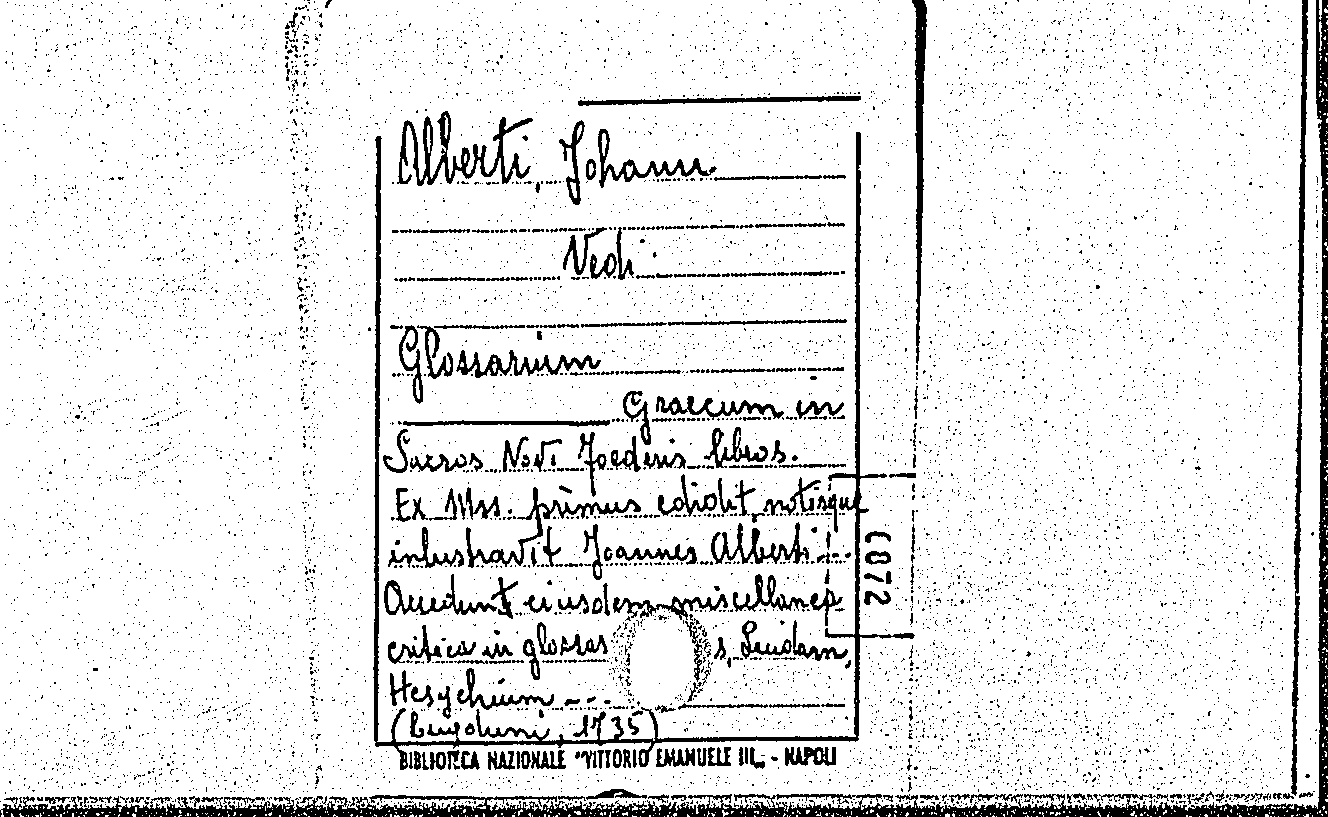 Alberti, Johann.
Vedi
Glossarium
Graecum in
Sacros Novi Foederis libros.
Ex Mss. primus edidit notisque
inlustravit Joannes Alberti...
Accedunt eiusdem miscellanea
critica in glossas s, Suidam,
Hesychium ...
(Lugduni, 1735)
BIBLIOTECA NAZIONALE "VITTORIO EMANUELE III„ - NAPOLI
C072